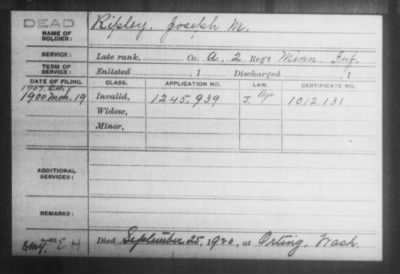 DEAD
NAME OF SOLDIER: Ripley, Joseph M.
SERVICE: Late rank, Co. A, 2 Reg't Minn. Inf.
TERM OF SERVICE: Enlisted , 1 Discharged , 1
DATE OF FILING. CLASS. APPLICATION NO. LAW. CERTIFICATE NO.
1900 Mch. 19 Invalid, 1245.939 J. 1012.131
Widow,
Minor,
ADDITIONAL SERVICES:
REMARKS:
Died September 25, 1920, at Orting, Wash.